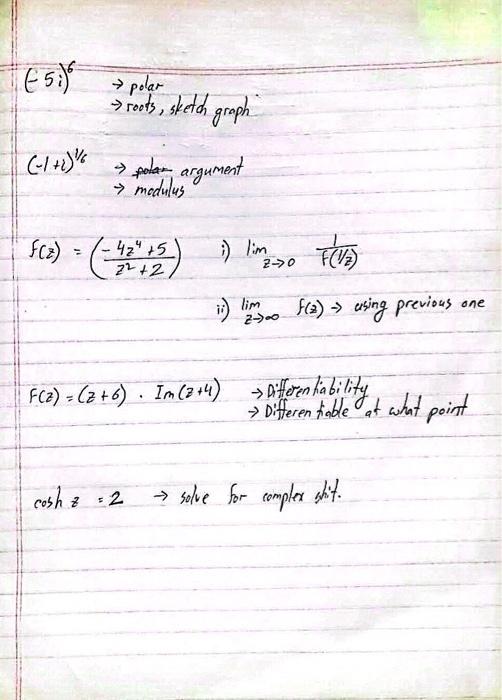 (-5i)^6 → polar
→ roots, sketch graph
(-1+i)^1/6 → polar argument
→ modulus
f(z) = (-4z^4+5 / z^2+2) i) lim z→0 1/f(1/z)
ii) lim z→∞ f(z) → using previous one
F(z) = (z+6) · Im(z+4) → Differentiability
→ Differentiable at what point
cosh z = 2 → solve for complex shit.